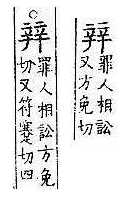 辡
罪人相訟
又方免切
○辡
罪人相訟方免
切又符蹇切四